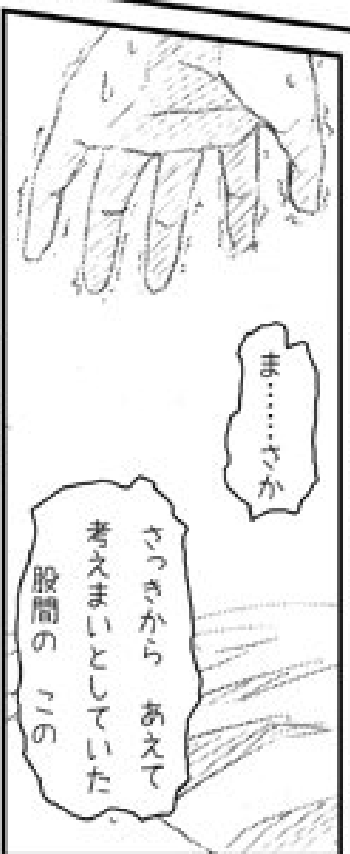 ま………さか
さっきから あえて
考えまいとしていた
股間の この